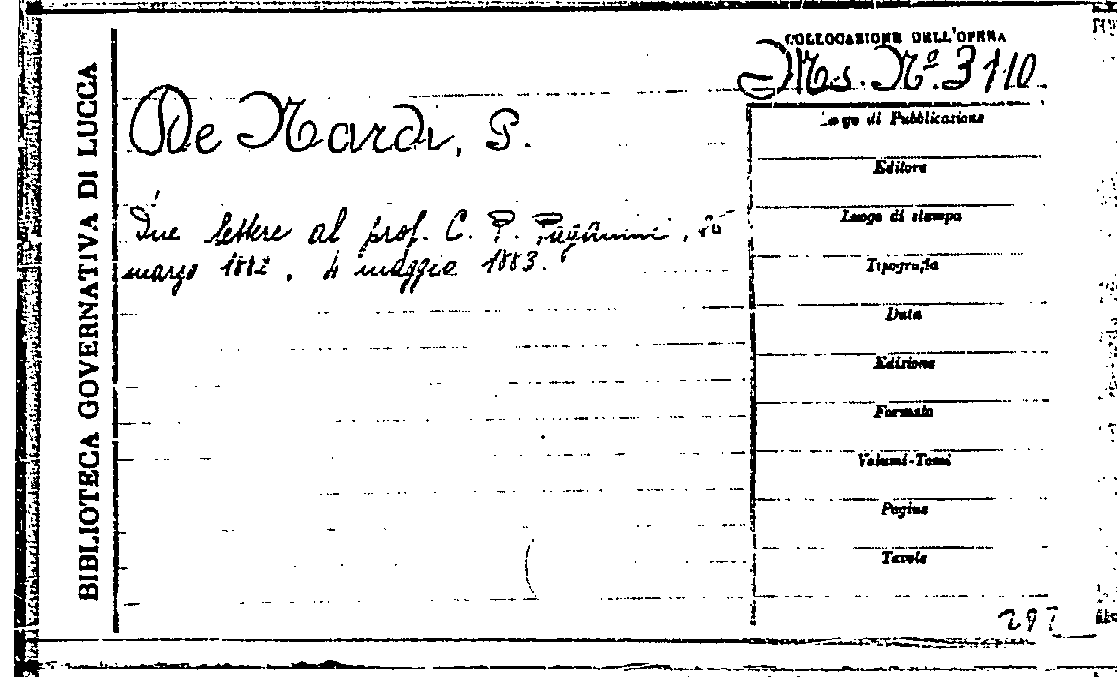 BIBLIOTECA GOVERNATIVA DI LUCCA
COLLOCAZIONE DELL'OPERA
Ms. Nº. 3110.
De Nardi, P.
Due lettere al prof. C. P. Paganini,
marzo 1882, 4 maggio 1883.
Luogo di Pubblicazione
Editore
Luogo di stampa
Tipografia
Data
Edizione
Formato
Volumi-Tomi
Pagine
Tavole
297